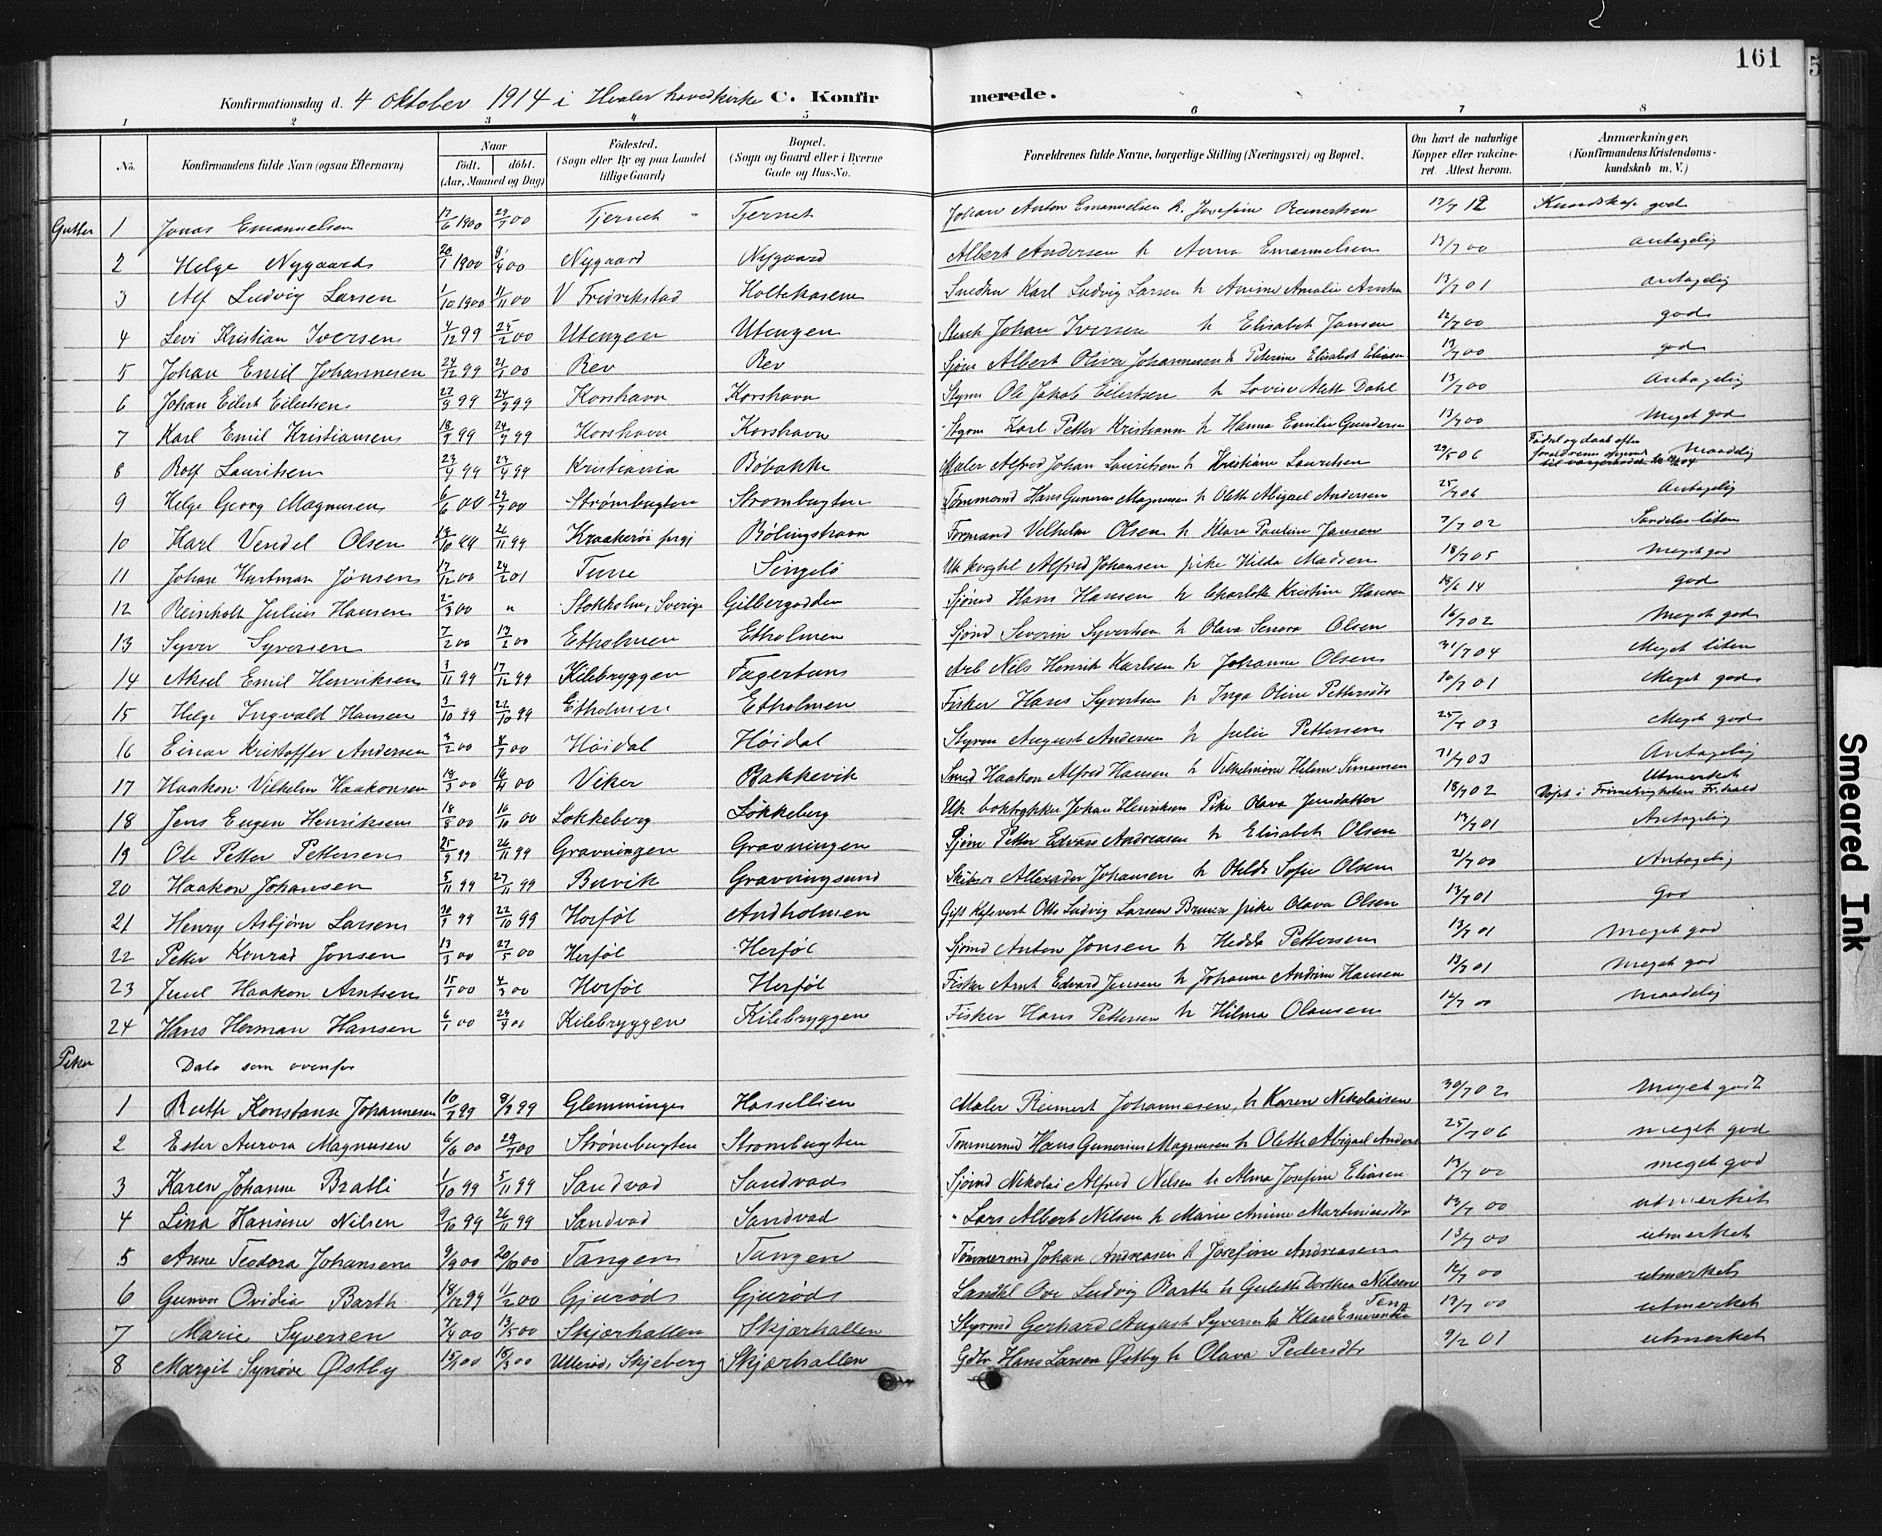 161
Konfirmationsdag d. 4 oktober 1914 i Hvaler hovedkirke C. Konfirmerede.
1 2 3 4 5 6 7 8
No. Konfirmandens fulde Navn (ogsaa Efternavn) Naar født. døbt. (Aar, Maaned og Dag) Fødested. (Sogn eller By og paa Landet tillige Gaard) Bopæl. (Sogn og Gaard eller i Byerne Gade og Hus-No. Forældrenes fulde Navne, borgerlige Stilling (Næringsvei) og Bopæl. Om havt de naturlige Kopper eller vakcineret. Attest herom. Anmærkninger, (Konfirmandens Kristendomskundskab m. V.)
Gutter 1 Jonas Emanuelsen 17/6 1900 29/7 00 Tjernet Tjernet Johan Anton Emanuelsen h. Josefine Reinertsen 17/7 12 Kundskap god
2 Helge Nygaard 20/1 1900 8/4 00 Nygaard Nygaard Albert Andersen h Anna Emanuelsen 13/7 00 antagelig
3 Alf Ludvig Larsen 1/10 1900 11/11 00 V Fredrikstad Holtekasene Snedker Karl Ludvig Larsen h Amalie 13/7 01 antagelig
4 Levi Kristian Iversen 4/12 99 25/2 00 Utengen Utengen Johan Iversen h Elisabet Jansen 12/7 00 god
5 Johan Emil Johannesen 24/12 99 21/1 00 Rev Rev Albert Oliva Johannesen h Peterine Elisabet Eliasen 13/7 00 god
6 Johan Eilert Eilertsen 99 24/9 99 Korshavn Korshavn Styrm Ole Jakob Eilertsen h Lovise Mette Dahl 13/7 00 Antagelig
7 Karl Emil Kristiansen 99 99 Korshavn Korshavn Styrm Karl Petter Kristiansen h Hanna Emilie Gundersen 13/7 00 Meget god
8 Rolf Lauritsen 23/4 99 23/4 99 Kristiania Bøbakke Maler Alfred Johan Lauritsen h Kristiane Lauritsen 29/5 06 Fødsel og daab efter forældrenes Maadelig
9 Helge Georg Magnusen 6/6 00 29/7 00 Strømbugten Strombugten Tømmermd Hans Gunerius Magnusen h Olette Abigael Andersen 25/7 06 Antagelig
10 Karl Vendel Olsen 14/10 99 26/11 99 Kraakerøi prgj Bølingshavn Formand Velhelm Olsen h Klara Pauline Jansen 7/7 02 liten
11 Johan Hartman Jonsen 17/12 00 24/2 01 Tune Singelø Uk Alfred Johansen pike Hilda Madsen 18/7 05 Meget god
12 Reinholt Julius Hansen 2/3 00 " Stokholm, Sverige Gilbergodden Sjømd Hans Hansen h Charlotte Kristine Hansen 18/6 14 god
13 Syver Syversen 7/2 00 Etholmen Etholmen Sjømd Severin Syvertsen h Olava Olsen 16/7 02 Meget god
14 Aksel Emil Henriksen 3/11 99 17/12 99 Kilebryggen Arb Nils Henrik Karlsen h Johanne Olsen 31/7 04 Meget liten
15 Helge Ingvald Hansen 3/10 99 22/10 99 Etholmen Etholmen Fisker Hans Syvertsen h Inga Oline Pettersdtr 10/7 01 Meget god
16 Einar Kristoffer Andersen 3/2 00 4/7 00 Høidal Høidal Styrm August Andersen h Julie Pettersen 25/7 03 Meget god
17 Haakon Vilhelm Haakonsen 19/3 00 16/4 00 Viker Bakkevik Smed Haakon Alfred Hansen h Vilhelmine Helene Simensen 31/7 03 Antagelig
18 Jens Eugen Henriksen 18/8 00 16/10 00 Løkkeberg Løkkeberg Uk boktrykker Johan Henriksen Pike Olava Jensdatter 18/7 02 Utmerket Døpt i Frimenigheten Fr.stad
19 Ole Petter Pettersen 25/9 99 26/11 99 Gravningen Gravningen Sjøm Petter Edvard Andreasen h Elisabet Olsen 13/7 01 Antagelig
20 Haakon Johansen 5/11 99 27/11 99 Buvik Gravningsund Skibsr Allexader Johansen h Otelde Sofie Olsen 21/7 00 Antagelig
21 Henry Asbjørn Larsen 99 22/10 99 Herføl Andholmen Gift Otto Ludvig Larsen pike Olava Olsen 13/7 01 God
22 Petter Konrad Jonsen 00 27/5 00 Herføl Herføl Sjømd Anton Jonsen h Hedda Pettersen 13/7 01 Meget god
23 Juul Haakon Arntsen 15/1 00 4/3 00 Herføl Herføl Fisker Arnt Edvard Jensen h Johanne Andrine Hansen 13/7 01 Meget god
24 Hans Herman Hansen 6/1 00 00 Kilebryggen Kilebryggen Fisker Hans Pettersen h Hilma Olausen 12/7 00 maadelig
Piker Dato som ovenfor
1 Ruth Konstanse Johannesen 10/7 99 8/9 99 Glemminge Hassellien Maler Reinert Johannesen, h Karen Nikolaisen 30/7 02 Meget godt
2 Ester Aurora Magnusen 6/6 00 29/7 00 Strømbugten Strombugten Tømmermd Hans Gunerius Magnusen h Olette Abigael Anders 25/7 06 meget god
3 Karen Johanne Bratli 1/10 99 5/11 99 Sandvad Sandvad Sjømd Nikolai Alfred Nilsen h Alma Josefine Eliasen 13/7 00 meget god
4 Lina Hansine Nilsen 9/10 99 26/11 99 Sandvad Sandvad " Lars Albert Nilsen h Marie Anine Martinusdtr 13/7 00 utmerket
5 Anne Teodora Johansen 9/9 00 20/10 00 Tangen Tangen Tømmermd Johan Andreasen h Josefine Andreasen 13/7 00 utmerket
6 Gunvor Ovidia Barth 18/12 99 11/2 00 Gjurød Gjurød Landhl Ove Ludvig Barth h Gulette Dorthea Nilsen 12/7 00 utmerket
7 Marie Syversen 7/4 00 13/5 00 Skjærhallen Skjærhallen Styrmd Gerhard August Syversen h Klara Esmerentse 13/7 00 utmerket
8 Margit Synøve Østby 15/1 00 18/3 00 Ullerød, Skjeberg Skjærhallen Gdbr Hans Larsen Østby h Olava Pedersdtr 9/2 01 utmerket
Smeared Ink